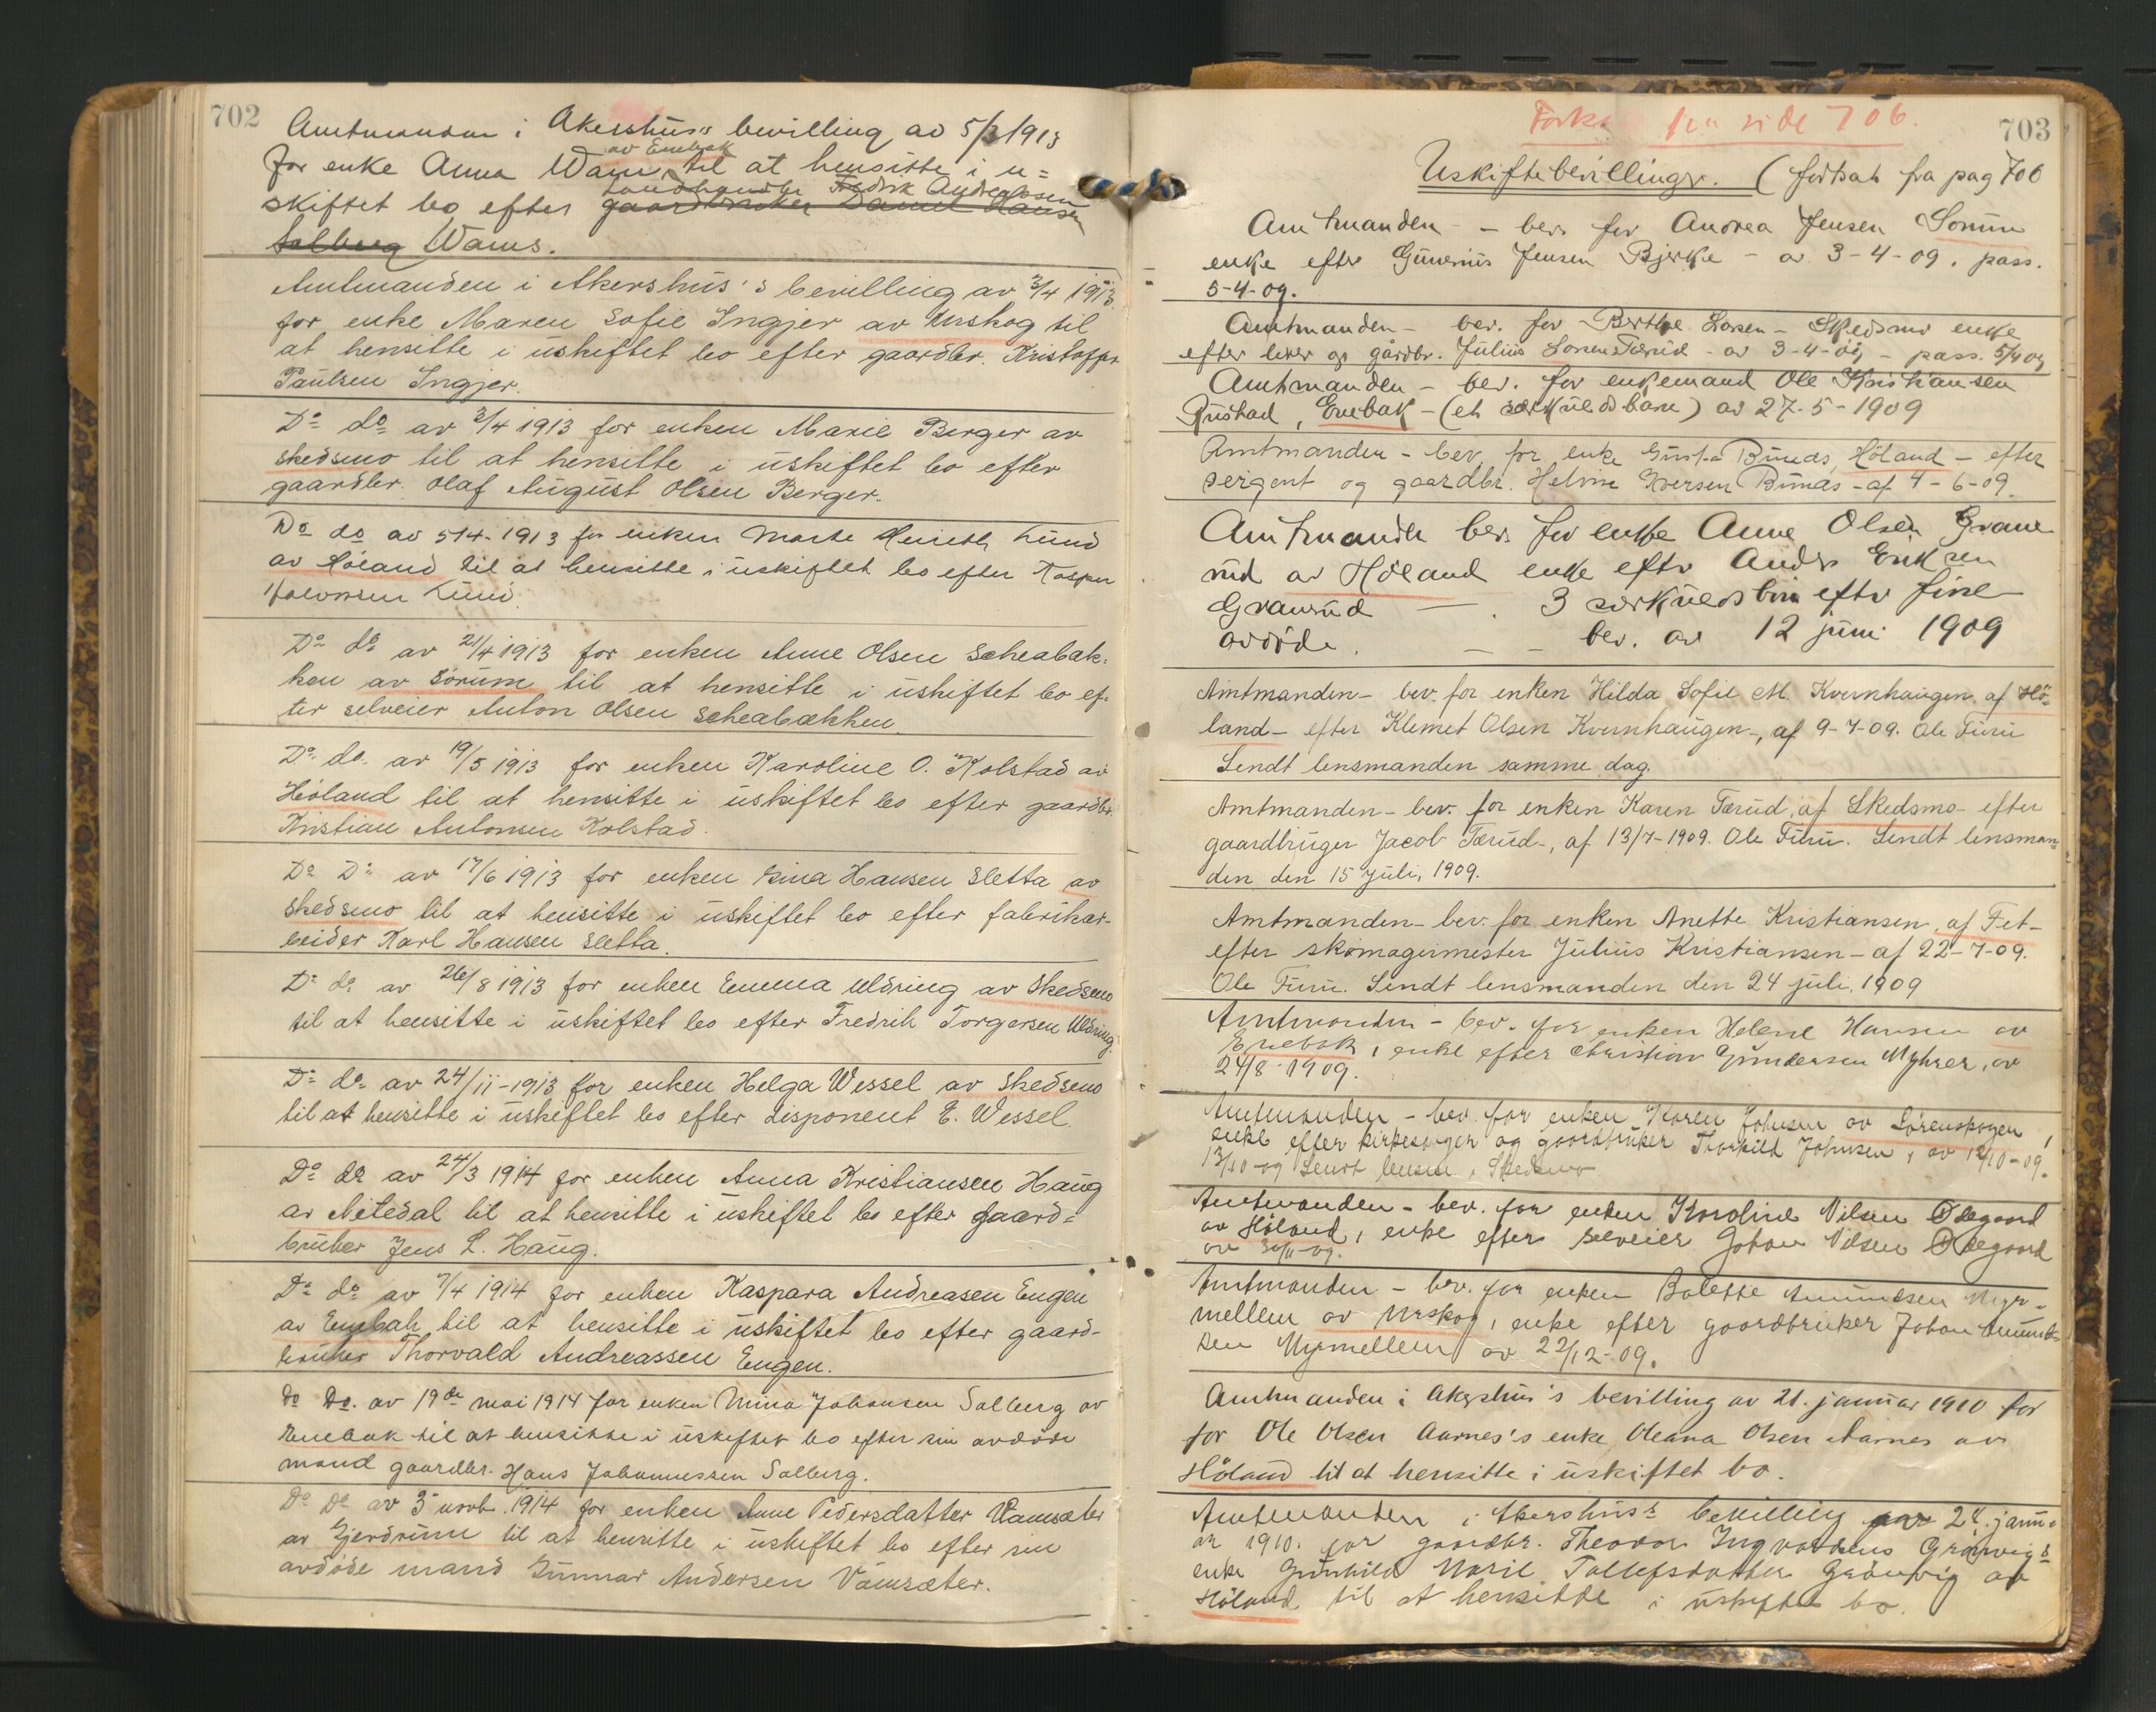 702
Amtmanden i Akershus's bevilling av 5/3 1913
av Enebak
for enke Anna Wam, til at hensitte i u=
landhandler Fredrik Andreassen
skiftet bo efter gaardbruker Daniel Hansen
Solberg Wams.
Amtmanden i Akershus's bevilling av 3/4 1913
for enke Maren Sofie Ingjer av Urskog til
at hensitte i uskiftet bo efter gaardbr. Kristoffer
Paulsen Ingjer.
Do do av 3/4 1913 for enken Marie Berger av
Skedsmo til at hensitte i uskiftet bo efter
gaardbr. Olaf August Olsen Berger.
Do do av 5/4-1913 for enken Marte Lund
av Höland til at hensitte i uskiftet bo efter Kasper
Halvorsen Lund.
Do do av 21/4 1913 for enken Anne Olsen Scheabak-
ken av Sörum til at hensitte i uskiftet bo ef-
ter selveier Anton Olsen Scheabækken.
Do do. av 19/5 1913 for enken Karoline O. Kolstad av
Höland til at hensitte i uskiftet bo efter gaardbr.
Kristian Antonsen Kolstad.
Do Do av 17/6 1913 for enken Gina Hansen Sletta av
Skedsmo til at hensitte i uskiftet bo efter fabrikar-
beider Karl Hansen Sletta.
Do do av 26/8 1913 for enken Emma Uldring av Skedsmo
til at hensitte i uskiftet bo efter Fredrik Torgersen Uldring.
Do do av 24/11-1913 for enken Helga Wessel av Skedsmo
til at hensitte i uskiftet bo efter disponent E. Wessel.
Do do av 24/3 1914 for enken Anna Kristiansen Haug
av Nitedal til at hensitte i uskiftet bo efter gaard=
bruker Jens L. Haug.
Do do av 7/4 1914 for enken Kaspara Andreasen Engen
av Enebak til at hensitte i uskiftet bo efter gaard-
bruker Thorvald Andreassen Engen.
do Do. av 19de mai 1914 for enken Mina Johansen Solberg av
Enebak til at hensitte i uskiftet bo efter sin avdöde
mand gaardbr. Hans Johannessen Solberg.
Do Do av 3 novb. 1914 for enken Anne Pedersdatter Vamsæter
av Gjerdrum til at hensitte i uskiftet bo efter sin
avdöde mand Gunnar Andersen Vamsæter.
703
Forts. fra side 706.
Uskiftebevillinger. (fortsat fra pag 706
Amtmanden - bev. for Andrea Jensen Sörum
enke efter Gunerius Jensen Bjerke - av 3-4-09. pass.
5-4-09.
Amtmanden - bev. for Berthe Larsen - Skedsmo enke
efter leier og gårdbr. Julius Larsen Tærud - av 3-4-09 - pass. 5/4 09
Amtmanden - bev. for enkemand Ole Kristiansen
Rustad, Enebak - (et særkuldsbarn) av 27-5-1909
Amtmanden - bev. for enke Gusta Bunæs, Höland - efter
sergent og gaardbr. Helmer Iversen Bunæs - af 4-6-09.
Amtmanden bev. for enke Anne Olsen Grane
rud av Höland enke efter Anders Eriksen
Granerud - . 3 særkuldsbörn efter sine
avdöde. - - bev. av 12 juni 1909
Amtmanden - bev. for enken Hilda Sofie M. Kvernhaugen, af Hö-
land - efter Klemet Olsen Kvernhaugen -, af 9-7-09. Ole Furu
Sendt lensmanden samme dag.
Amtmanden - bev. for enken Karen Tærud, af Skedsmo - efter
gaardbruger Jacob Tærud -, af 13/7-1909. Ole Furu. Sendt lensman
den den 15 juli, 1909.
Amtmanden - bev. for enken Anette Kristiansen, af Fet -
efter skomagermester Julius Kristiansen - af 22-7-09.
Ole Furu. Sendt lensmanden den 24 juli, 1909
Amtmanden - bev. for enken Helene Hansen av
Enebak, enke efter Christian Gundersen Myhrer, av
24/8-1909.
Amtmanden - bev. for enken Karen Johnsen av Lörenskogen,
enke efter kirkesanger og gaardbruker Thorkild Johnsen, av 12/10-09.
13/10-09 Sendt lensm. i Skedsmo
Amtmanden - bev. for enken Karoline Nilsen Ödegaard
av Höland, enke efter selveier Johan Nilsen Ödegaard
av 30/11-09.
Amtmanden - bev. for enken Bolette Amundsen Myr-
mellem av Urskog, enke efter gaardbruker Johan Amund-
sen Myrmellem av 22/12-09.
Amtmanden i Akershus's bevilling av 21. januar 1910 for
for Ole Olsen Aarnes's enke Oleana Olsen Aarnes av
Höland til at hensitte i uskiftet bo.
Amtmanden i Akershus's bevilling av 24. janu-
ar 1910. for gaardbr. Theodor Ingvaldsens Grönvigs
enke Gunhild Marie Tollefsdatter Grönvig av
Höland til at hensitte i uskiftet bo.